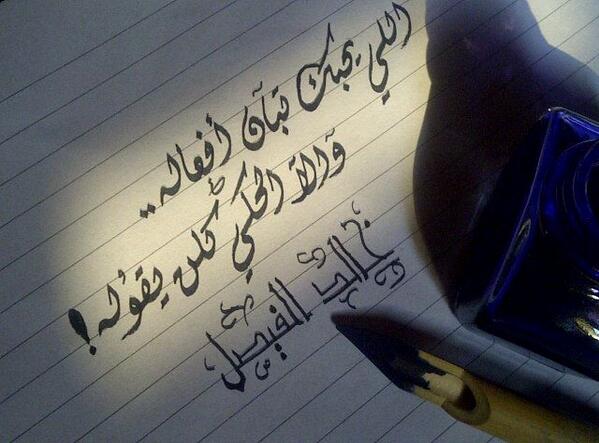 اللي يحبك تبان أفعاله..
والا الحكي كلن يقوله!
خالد الفيصل